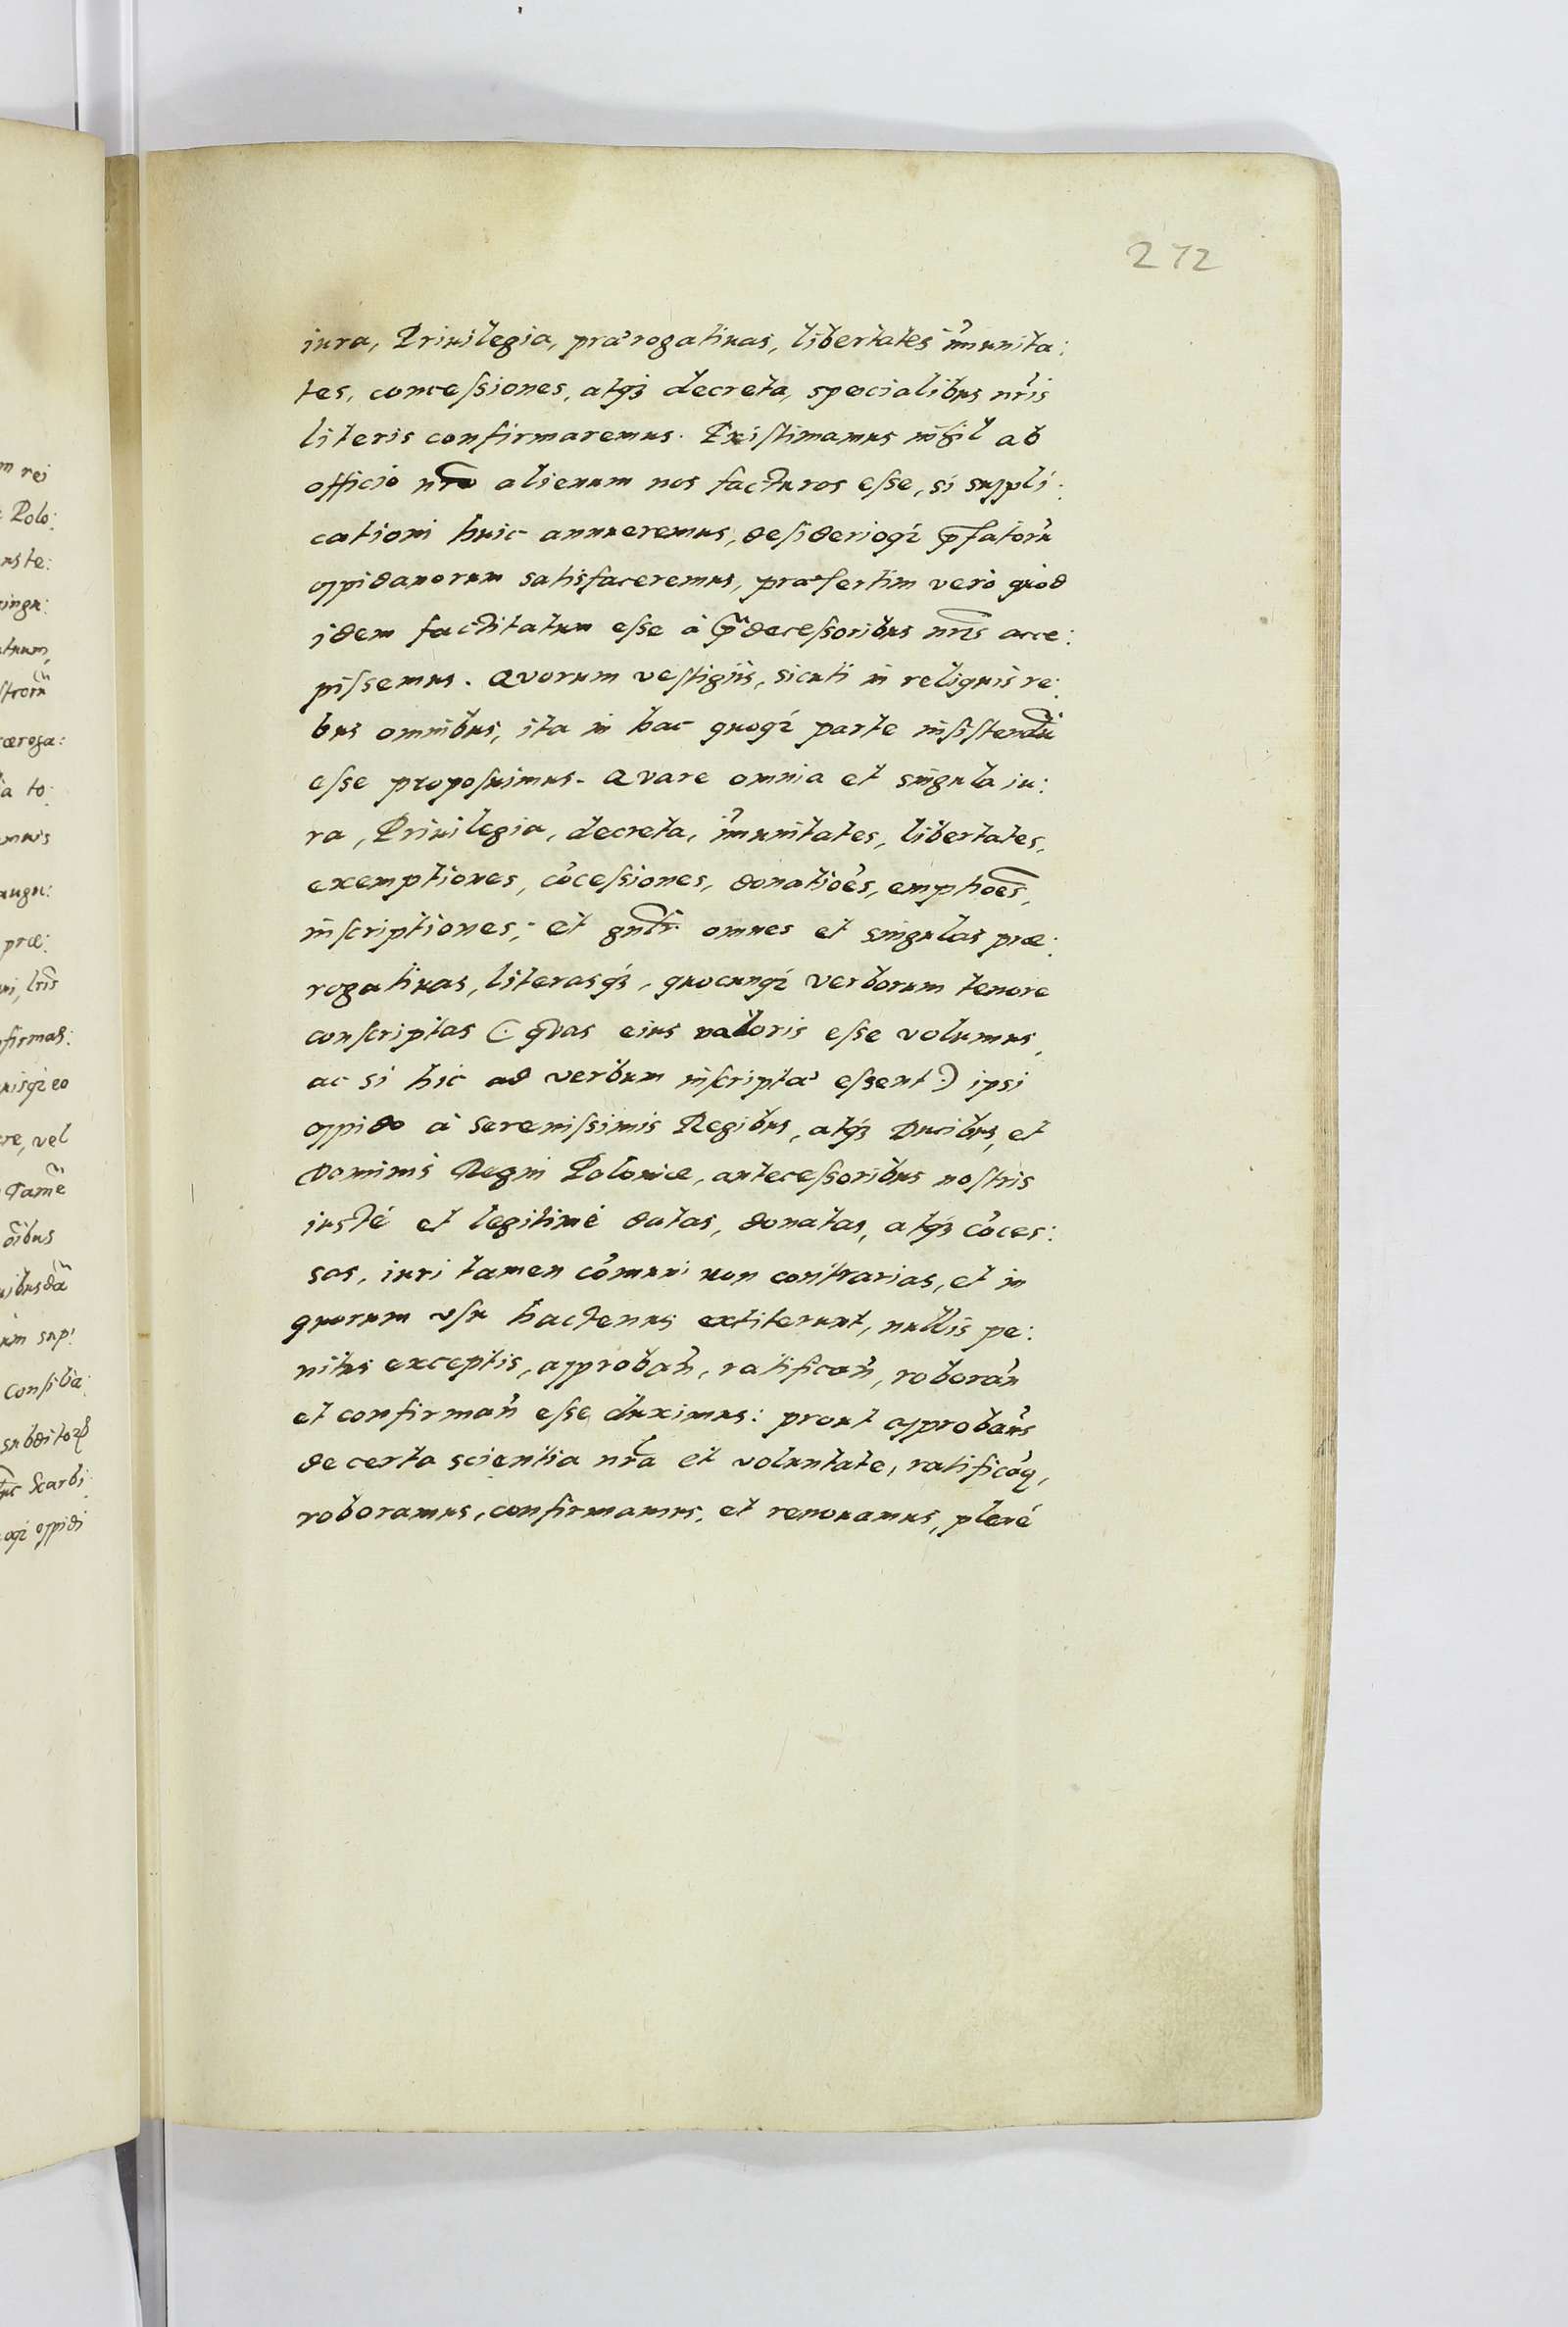 272
m rei
Polo:
uste:
singu:
atuum,
ſtrorũ
æroga:
la to:
omnis
augu:
præ:
ui, lr̃is
firmas:
uisq́ꝫ eo
re, vel
Tamẽ
oĩbus
uibusdã
um sup:
consilia:
subditoꝝ
Scarbi:
oqꝫ oppidi
iura, Priuilegia, prærogatiuas, libertates im̃unita:
tes, conceſsiones, atqꝫ decreta, specialibus nr̃is
literis confirmaremus. Exiſtimamus nihil ab
officio nr̃o alienum nos facturos eſse, si suppli:
cationi huic annueremus, deſiderioqꝫ p̃fatorũ
oppidanorum satisfaceremus, præſertim verò quod
idem factitatum eſse à p̃deceſsoribus nr̃is acce:
piſsemus. Quorum veſtigiis, sicuti in reliquis re:
bus omnibus, ita in hac quoqꝫ parte inſiſtendũ
eſse propoſuimus. Quare omnia et singula iu:
ra, Priuilegia, decreta, im̃unitates, libertates,
exemptiones, cõceſsiones, donatioẽs, emptioẽs,
inſcriptiones, et gñlr̃ omnes et singulas præ:
rogatiuas, literasqꝫ, quocunqꝫ verborum tenore
conſcriptas (: quas eius valoris eſse volumus,
ac si hic ad verbum inſcriptæ eſsent :) ipsi
oppido à Sereniſsimis Regibus, atqꝫ Ducibus, et
Dominis Regni Poloniæ, anteceſsoribus noſtris
iustè et legitimè datas, donatas, atqꝫ cõces:
sas, iuri tamen cõmuni non contrarias, et in
quorum vſu hactenus extiterunt, nullis pe:
nitus exceptis, approbañ, ratificañ, roborañ
et confirmañ eſse duximus: prout approbam̃s
de certa scientia nr̃a et voluntate, ratificãꝰ,
roboramus, confirmamus, et renouamus, plenè